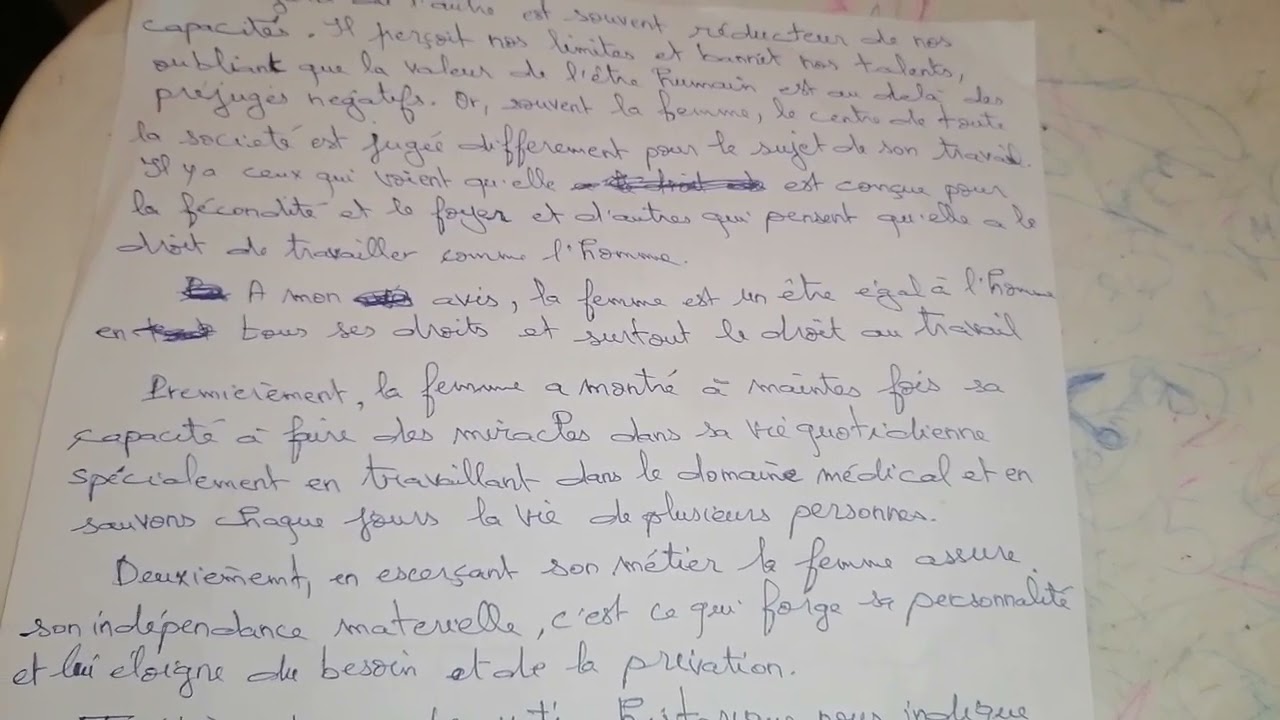 l'autre est souvent réducteur de nos
capacités. Il perçoit nos limites et banniet nos talents,
oubliant que la valeur de l'être humain est au delà des
préjugés négatifs. Or, souvent la femme, le centre de toute
la societé est jugée differement pour le sujet de son travail.
Il y a ceux qui voient qu'elle est conçue pour
la fécondité et le foyer et d'autres qui pensent qu'elle a le
droit de travailler comme l'homme.
A mon avis, la femme est un être égal à l'homme
en tous ses droits et surtout le droit au travail
Premierèment, la femme a montré à maintes fois sa
capacité à faire des miracles dans sa vie quotidienne
spécialement en travaillant dans le domaine médical et en
sauvons chaque jours la vie de plusieurs personnes.
Deuxiememt, en escerçant son métier la femme assure
son indépendance materielle, c'est ce qui forge sa personnalité
et lui éloigne du besoin et de la privation.
indique